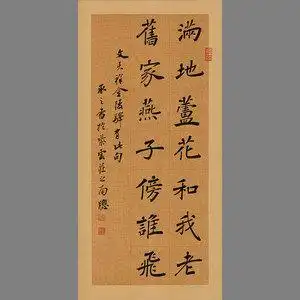 滿地蘆花和我老
舊家燕子傍誰飛
文天祥金陵驛有此句
承之書於紫雲莊之南窗